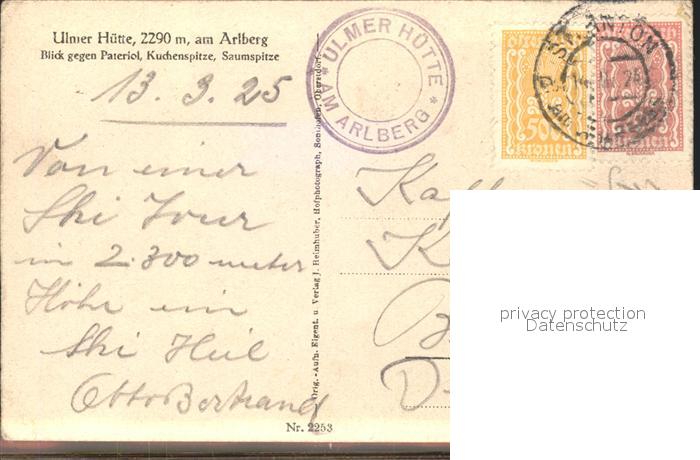 Ulmer Hütte, 2290 m, am Arlberg
Blick gegen Pateriol, Kuchenspitze, Saumspitze
13. 3. 25
Von einer
Ski Tour
in 2.300 meter
Höhe ein
Ski Heil
Otto Bertrand
Orig.-Aufn. Eigent. u. Verlag J. Heimhuber, Hofphotograph, Sonthofen, Oberstdorf.
Nr. 2253
* ULMER HÜTTE *
AM ARLBERG
500
kronen
ST. ANTON
kronen
privacy protection
Datenschutz